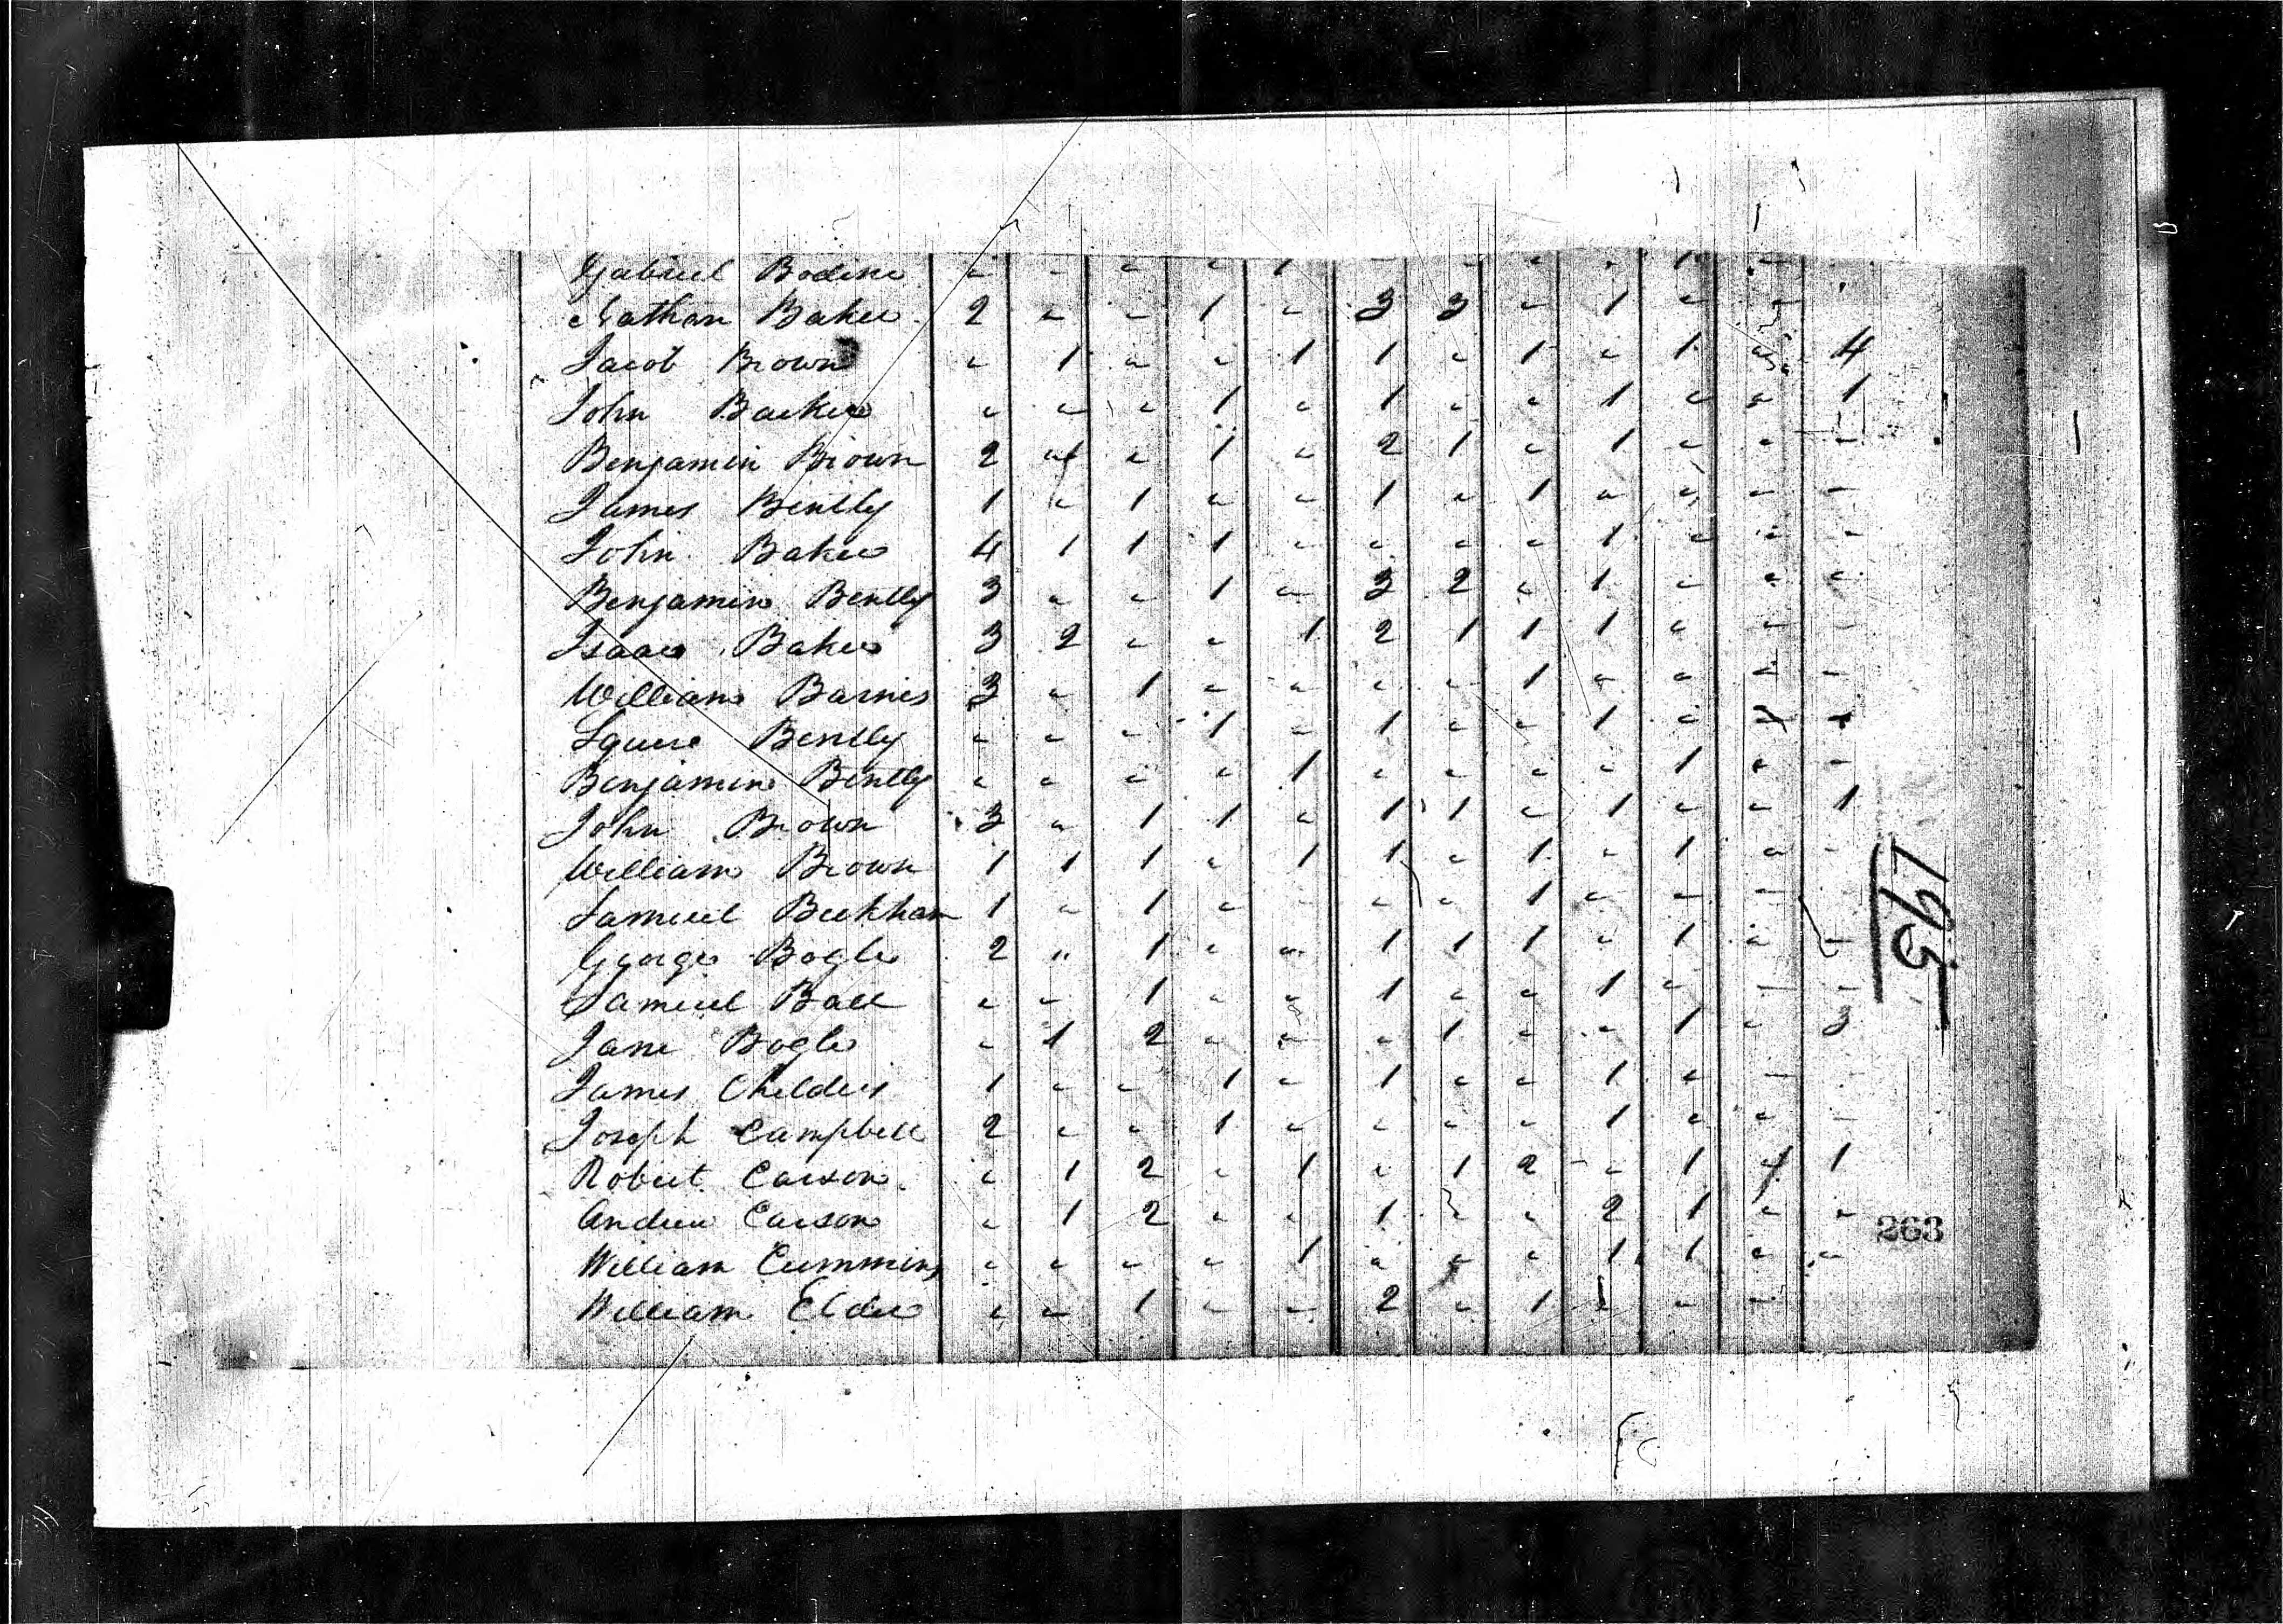 Gabriel Bodine " " " " 1 - - " " 1 " -
Nathan Baker 2 " " 1 " 3 3 " 1 " - -
Jacob Brown " 1 " " 1 1 " 1 " 1 " 4
John Barker " " " 1 " 1 " " 1 " " 1
Benjamin Brown 2 " " 1 " 2 1 " 1 " " -
James Bently 1 " 1 " " 1 " 1 " " - -
John Baker 4 1 1 1 " " " " 1 " " -
Benjamin Bently 3 " " 1 " 3 2 " 1 " " "
Isaac Baker 3 2 " " 1 2 1 1 1 " - -
William Barnes 3 " 1 " " " " 1 " " " -
Squire Bently " " " 1 " 1 " " 1 " - -
Benjamin Bently " " " " 1 " " " " 1 " -
John Brown 3 " 1 1 " 1 1 " 1 " " 1
William Brown 1 1 1 " 1 1 " 1 " 1 " -
Samuel Beekham 1 " 1 " - " " 1 " - - -
George Bogle 2 " 1 " " 1 1 1 " 1 " -
Samuel Ball " " 1 " " 1 " " 1 " - -
Jane Bogle " 1 2 " " " 1 " " 1 " 3
James Childers 1 " " 1 " 1 " " 1 " - -
Joseph Campbell 2 " " 1 " " " " 1 " " -
Robert Carson " 1 2 " 1 " 1 2 " 1 1
Andrew Carson " 1 2 " " 1 " " 2 1 " "
William Cummins " " " " 1 " " " 1 1 " "
William Elder " " 1 " " 2 " 1 " -
195
263